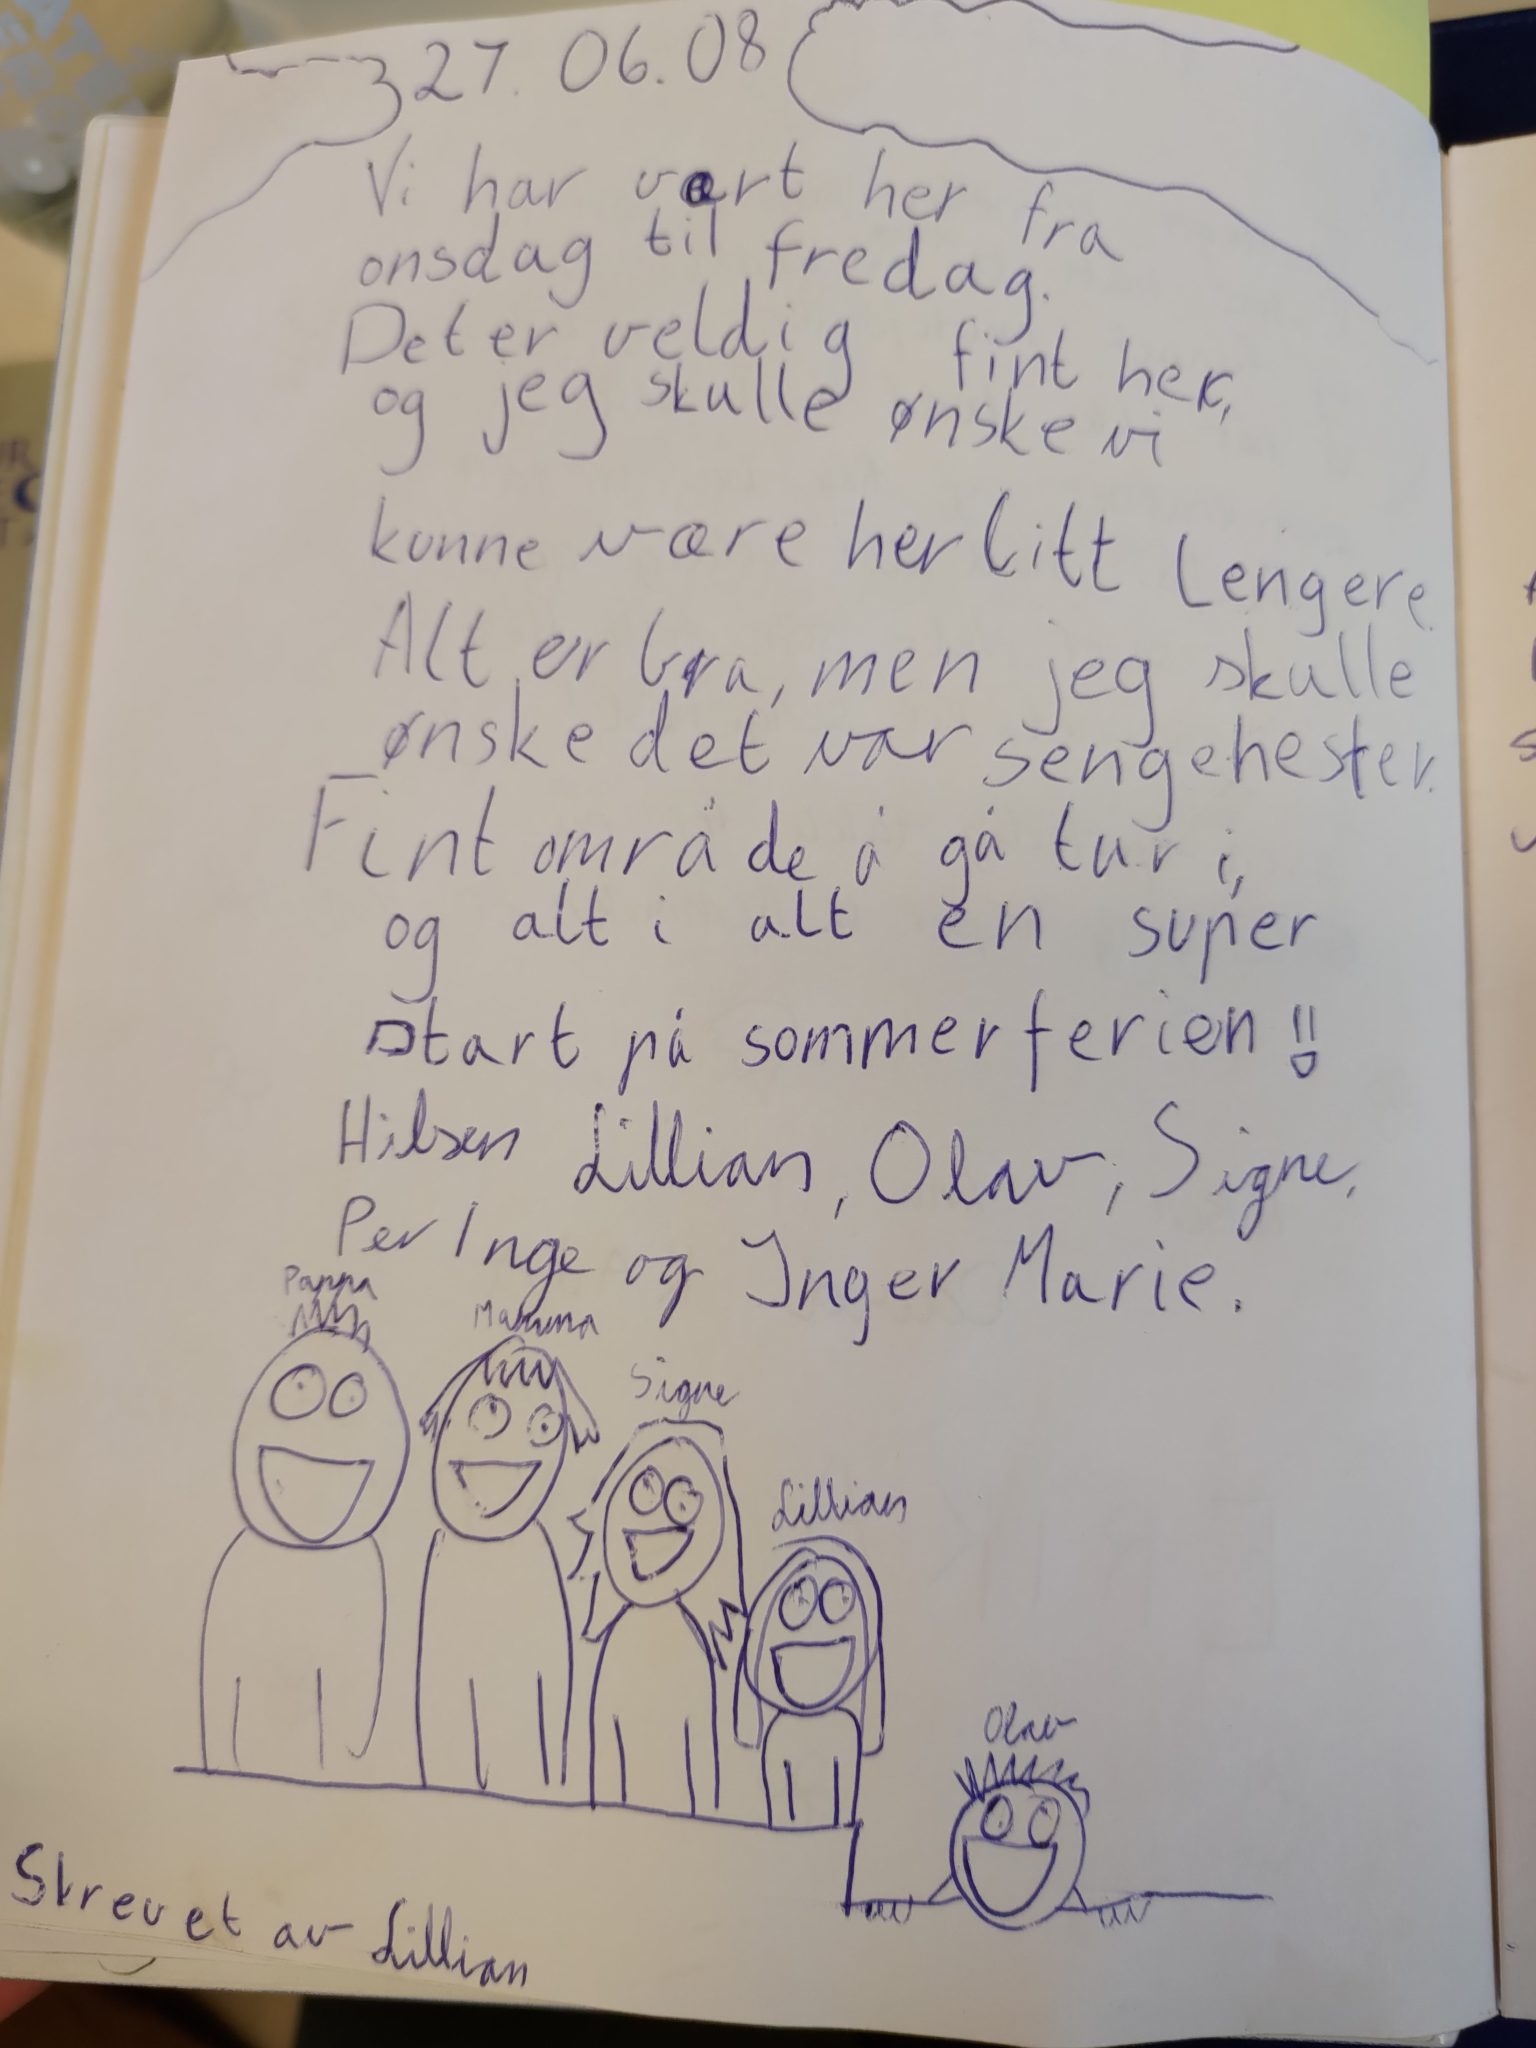 27.06.08
Vi har vært her fra
onsdag til fredag.
Det er veldig fint her,
og jeg skulle ønske vi
kunne være her litt lengere.
Alt er bra, men jeg skulle
ønske det var sengehester.
Fint område å gå tur i,
og alt i alt en super
start på sommerferien!!
Hilsen Lillian, Olav, Signe,
Per Inge og Inger Marie.
Pappa
Mamma
Signe
Lillian
Olav
Skrevet av Lillian